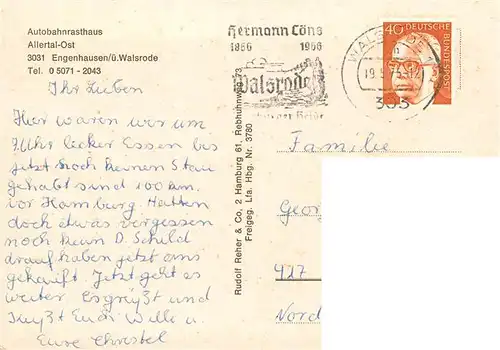 Autobahnrasthaus
Allertal-Ost
3031 Engenhausen/ü.Walsrode
Tel. 0 5071 - 2043
Ihr Lieben
Hier waren wir um
7 Uhr lecker Essen bis
jetzt noch keinen Stau
gehabt sind 100 km.
vor Hamburg. Hatten
doch etwas vergessen
noch kein D. Schild
drauf haben jetzt eins
gekauft. Jetzt geht es
weiter Es grüßt und
küßt Euch Willi u
Eure Christel
Hermann Löns
1866 1966
Walsrode
Heide
WALSRODE
19.5.75-12
303
40
DEUTSCHE
BUNDESPOST
Rudolf Reher & Co, 2 Hamburg 61, Rebhuhnweg
Freigeg. Lfa. Hbg. Nr. 3780
Familie
Georg
427
Nord